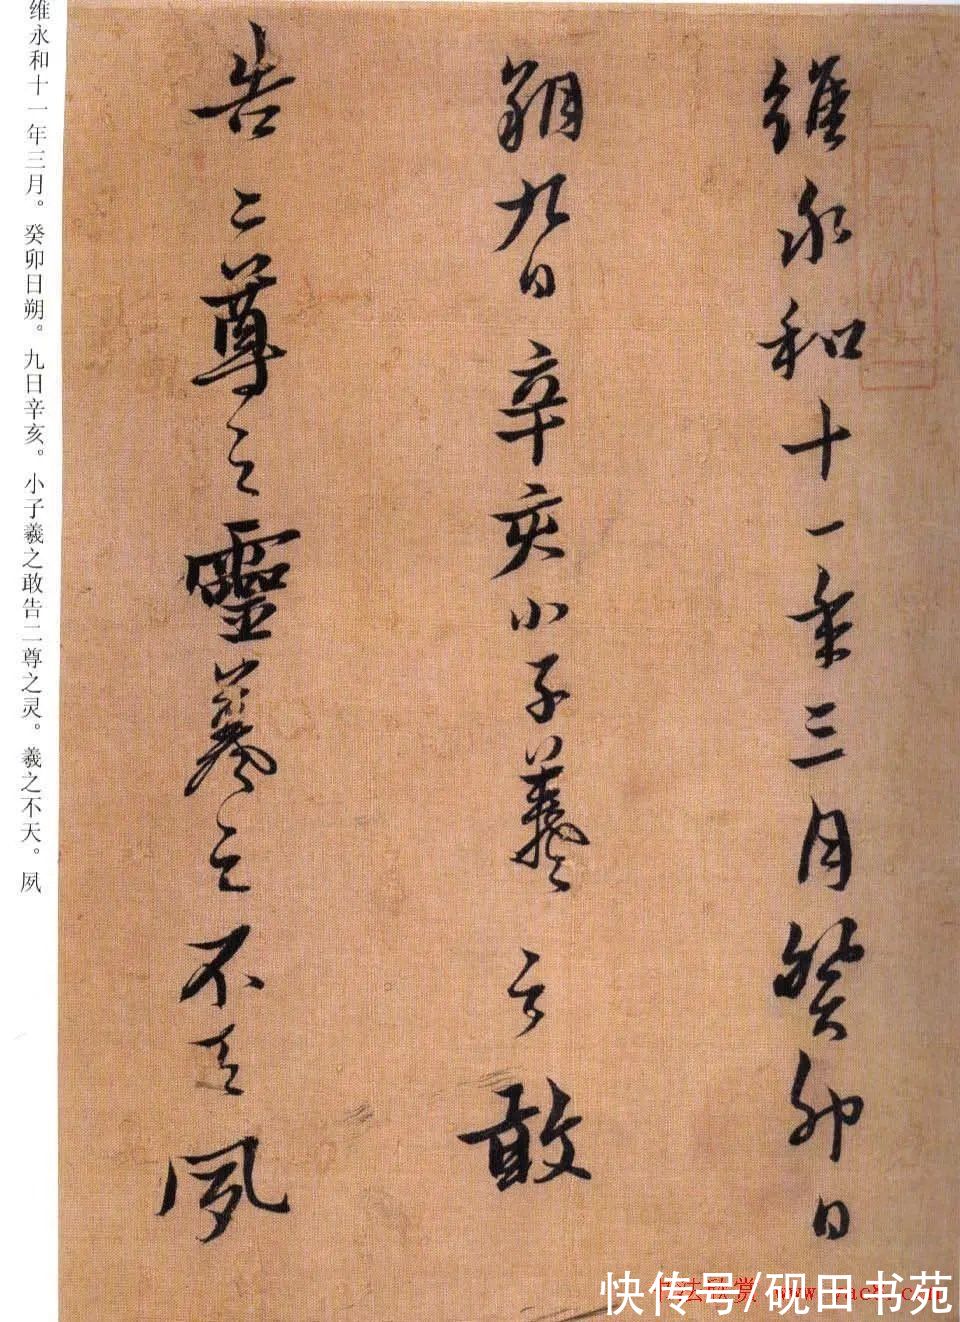 維永和十一年三月癸卯日
朔九日辛亥小子羲之敢
告二尊之靈羲之不天夙
维永和十一年三月。癸卯日朔。九日辛亥。小子羲之敢告二尊之灵。羲之不天。夙
快传号/砚田书苑